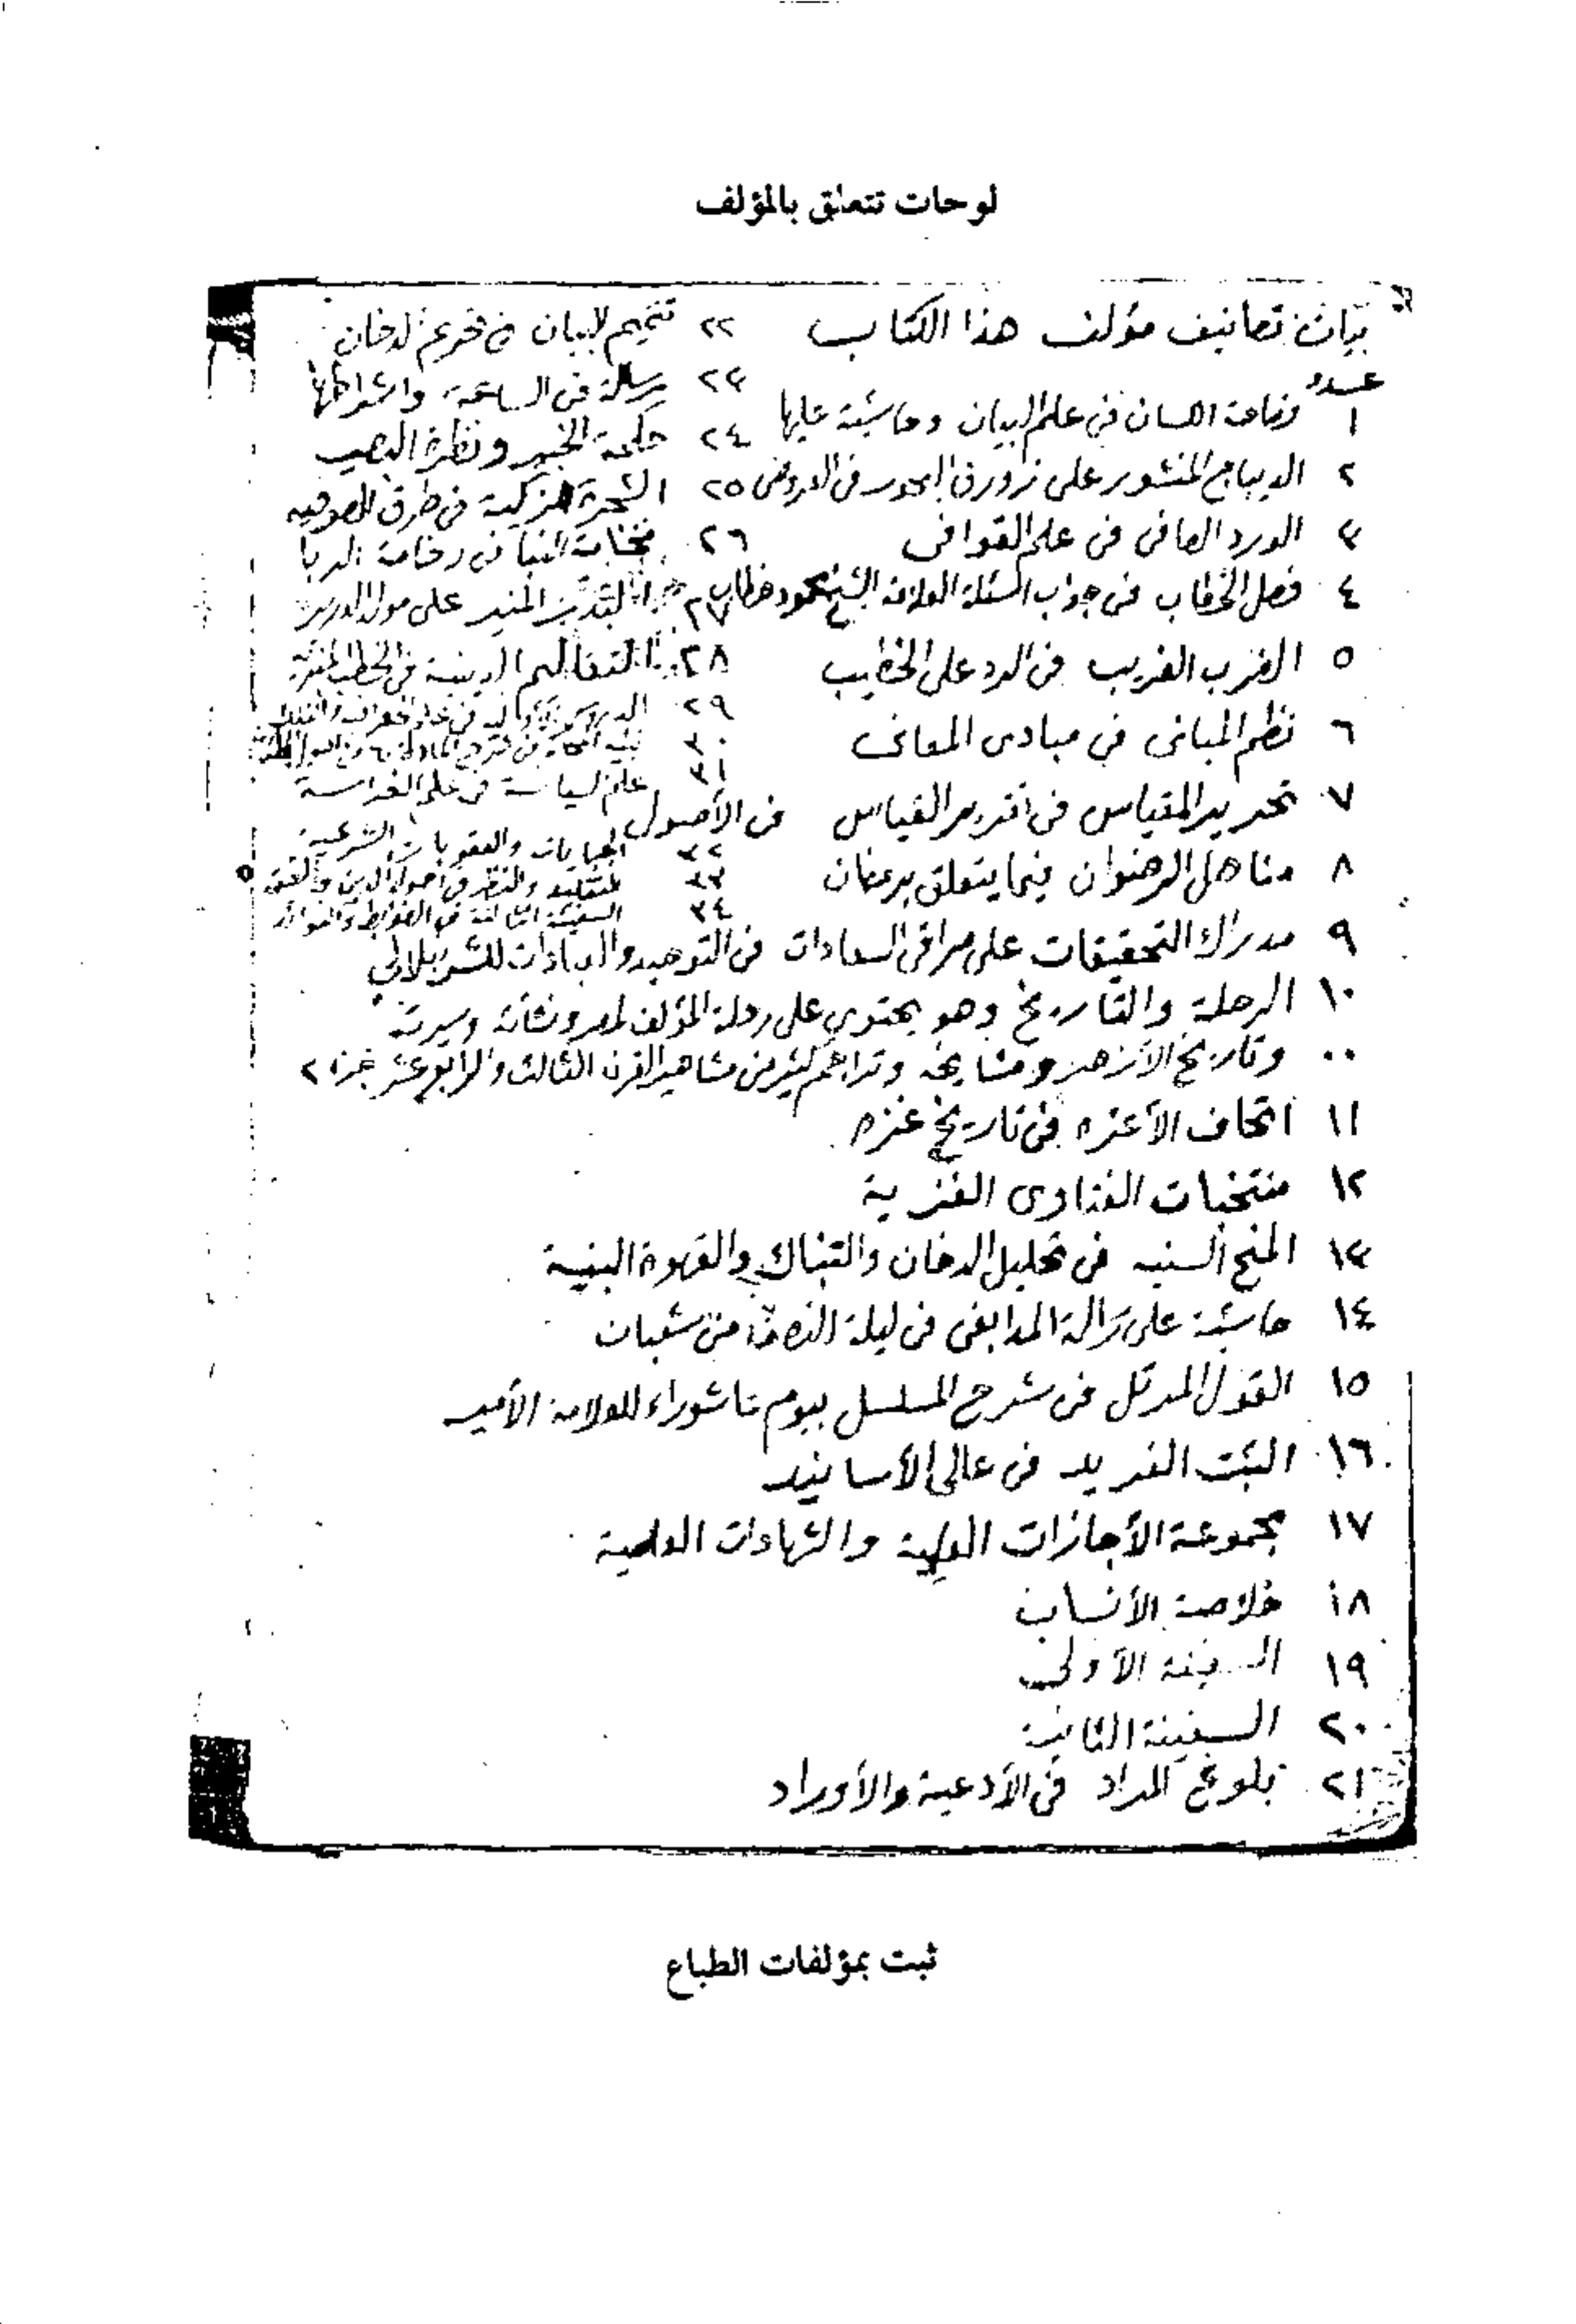 لوحات تتعلق بالمؤلف
بيان تصانيف مؤلف هذا الكتاب
عدد
١ فصاحة اللسان في علم البيان وحاشية عليها
٢ الديباج المنشور على زورق البحور في العروض
٣ الورد الصافي في علم القوافي
٤ فصل الخطاب في جواب اسئلة العلامة الشيخ محمود خطاب
٥ الضرب الغريب في الرد على الخطيب
٦ نظم المباني في مبادي المعاني
٧ تحرير المقياس في تقرير القياس في الأصول
٨ مناهل الرضوان فيما يتعلق برمضان
٩ مدراك التحقيقات على مراقي السعادات في التوحيد والعبادات للشرنبلالي
١٠ الرحلة والتاريخ وهو يحتوي على رحلة المؤلف لمصر ونشأته وسيرته
٠٠ وتاريخ الأزهر ومشايخه وتراجم كثير من مشاهير القرن الثالث والرابع عشر جزء ٢
١١ اتحاف الأعزه في تاريخ غزه
١٢ منتخبات الفتاوى الغزية
١٣ المنح السنيه في تحليل الدخان والتنباك والقهوة البنية
١٤ حاشية على رسالة المدابغي في ليلة النصف من شعبان
١٥ القول المدلل في شرح المسلسل بيوم عاشوراء للعلامة الأمير
١٦ الثبت الفريد في عالي الأسانيد
١٧ مجموعة الأجازات العلية والشهادات العلمية
١٨ خلاصة الأنساب
١٩ السفينة الأولى
٢٠ السفينة الثانية
٢١ بلوغ المراد في الأدعية والأوراد
٢٢ تتميم البيان في فروع الدخان
٢٣ رسالة في الساعة واشراطها
٢٤ حكمة الخبير ونظرة البصير
٢٥ الشجرة الزكية في طرق الصوفيه
٢٦ في
٢٧ المنير على مولد الدردير
٢٨ الدينية في الخطب المنبرية
٢٩ في علم
٣٠
٣١ علم السياسة في علم الفراسة
٣٢ الجنايات والعقوبات الشرعية
٣٣ في أصول الدين والفقه
٣٤ السفينة الثالثة في الضوابط والفوائد
ثبت بمؤلفات الطباع